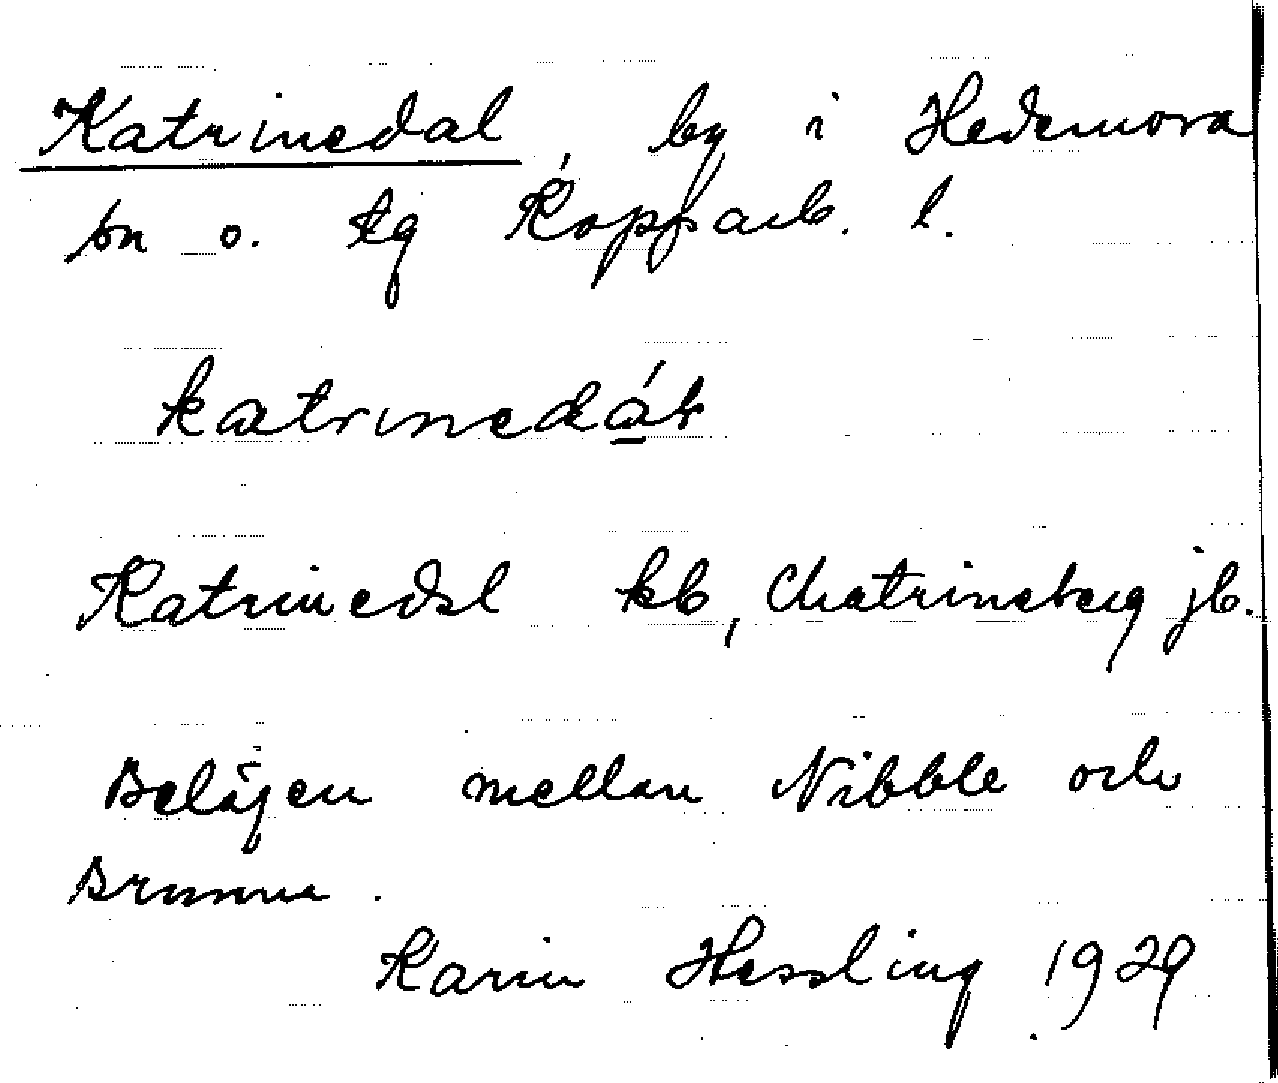 Katrinedal, by i Hedemora
sn o. tg Kopparb. l.
katrinedá̱ɫ
Katrinedal kb, Chatrineberg jb.
Belägen mellan Nibble och
Brunna.
Karin Hessling 1929